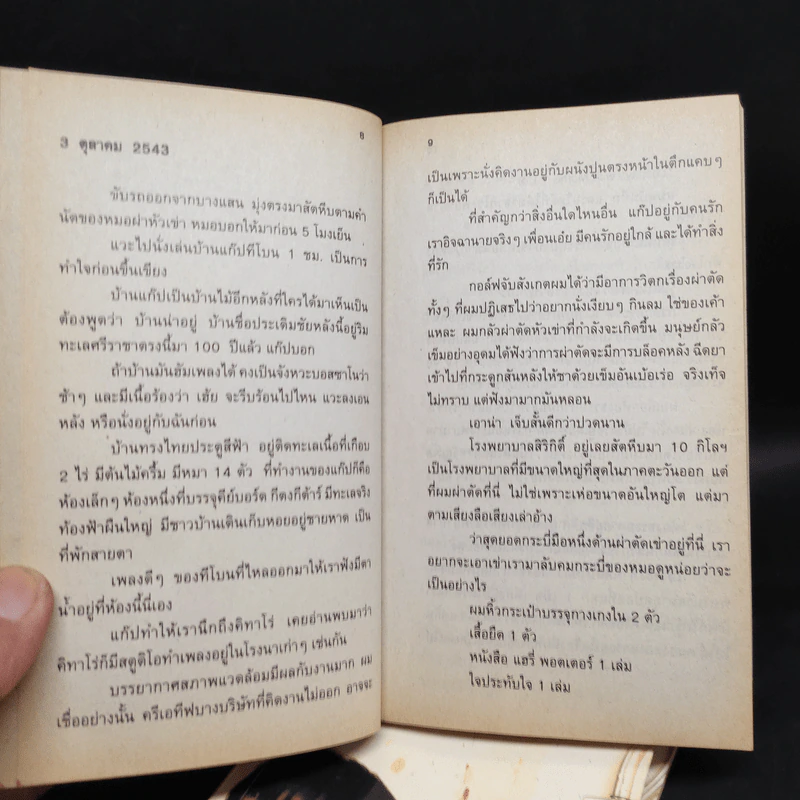 8
3 ตุลาคม 2543
ขับรถออกจากบางแสน มุ่งตรงมาสัตหีบตามคำ
นัดของหมอผ่าหัวเข่า หมอบอกให้มาก่อน 5 โมงเย็น
แวะไปนั่งเล่นบ้านแก๊ปทีโบน 1 ชม. เป็นการ
ทำใจก่อนขึ้นเขียง
บ้านแก๊ปเป็นบ้านไม้อีกหลังที่ใครได้มาเห็นเป็น
ต้องพูดว่า บ้านน่าอยู่ บ้านชื่อประเดิมชัยหลังนี้อยู่ริม
ทะเลศรีราชาตรงนี้มา 100 ปีแล้ว แก๊ปบอก
ถ้าบ้านมันฮัมเพลงได้ คงเป็นจังหวะบอสซาโนว่า
ช้าๆ และมีเนื้อร้องว่า เฮ้ย จะรีบร้อนไปไหน แวะลงเอน
หลัง หรือนั่งอยู่กับฉันก่อน
บ้านทรงไทยประตูสีฟ้า อยู่ติดทะเลเนื้อที่เกือบ
2 ไร่ มีต้นไม้ครึ้ม มีหมา 14 ตัว ที่ทำงานของแก๊ปก็คือ
ห้องเล็กๆ ห้องหนึ่งที่บรรจุคีย์บอร์ด ก็ตงกีต้าร์ มีทะเลจริง
ท้องฟ้าผืนใหญ่ มีชาวบ้านเดินเก็บหอยอยู่ชายหาด เป็น
ที่พักสายตา
เพลงดีๆ ของทีโบนที่ไหลออกมาให้เราฟังมีตา
น้ำอยู่ที่ห้องนี้นี่เอง
แก๊ปทำให้เรานึกถึงคิทาโร่ เคยอ่านพบมาว่า
คิทาโร่ก็มีสตูดิโอทำเพลงอยู่ในโรงนาเก่าๆ เช่นกัน
บรรยากาศสภาพแวดล้อมมีผลกับงานมาก ผม
เชื่ออย่างนั้น ครีเอทีฟบางบริษัทที่คิดงานไม่ออก อาจจะ
9
เป็นเพราะนั่งคิดงานอยู่กับผนังปูนตรงหน้าในตึกแคบๆ
ก็เป็นได้
ที่สำคัญกว่าสิ่งอื่นใดไหนอื่น แก๊ปอยู่กับคนรัก
เราอิจฉานายจริงๆ เพื่อนเอ๋ย มีคนรักอยู่ใกล้ และได้ทำสิ่ง
ที่รัก
กอล์ฟจับสังเกตผมได้ว่ามีอาการวิตกเรื่องผ่าตัด
ทั้งๆ ที่ผมปฏิเสธไปว่าอยากนั่งเงียบๆ กินลม ใช่ของเค้า
แหละ ผมกลัวผ่าตัดหัวเข่าที่กำลังจะเกิดขึ้น มนุษย์กลัว
เข็มอย่างอุดมได้ฟังว่าการผ่าตัดจะมีการบล็อคหลัง ฉีดยา
เข้าไปที่กระดูกสันหลังให้ชาด้วยเข็มอันเบ้อเร่อ จริงเท็จ
ไม่ทราบ แต่ฟังมามากมันหลอน
เอาน่า เจ็บสั้นดีกว่าปวดนาน
โรงพยาบาลสิริกิติ์ อยู่เลยสัตหีบมา 10 กิโลฯ
เป็นโรงพยาบาลที่มีขนาดใหญ่ที่สุดในภาคตะวันออก แต่
ที่ผมผ่าตัดที่นี่ ไม่ใช่เพราะเห่อขนาดอันใหญ่โต แต่มา
ตามเสียงลือเสียงเล่าอ้าง
ว่าสุดยอดกระบี่มือหนึ่งด้านผ่าตัดเข่าอยู่ที่นี่ เรา
อยากจะเอาเข่าเรามาลับคมกระบี่ของหมอดูหน่อยว่าจะ
เป็นอย่างไร
ผมหิ้วกระเป๋าบรรจุกางเกงใน 2 ตัว
เสื้อยืด 1 ตัว
หนังสือ แฮรี่ พอตเตอร์ 1 เล่ม
ใจประทับใจ 1 เล่ม